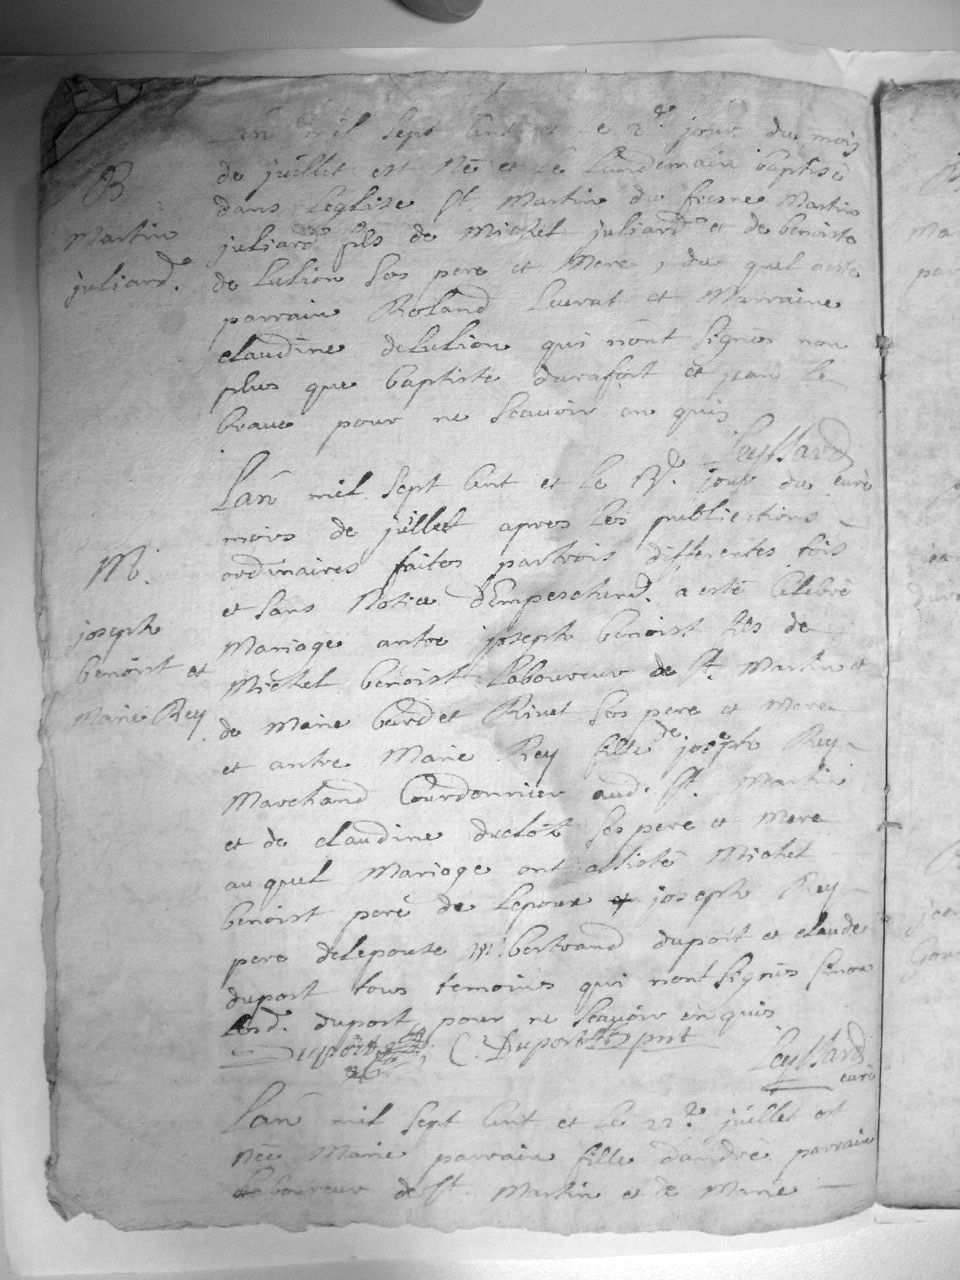 Lan mil sept cent et le 2e jour du mois
B
de juillet est né et le lundemain baptisé
dans leglise st. martin du fresne martin
Martin
juliard fils de Michel juliard et de benoiste
juliard.
de lulion ses pere et Mere, du quel a esté
parrain Roland et Marraine
claudine delulion qui nont signés non
plus que baptiste durafort et jean le
brave pour ne scavoir en quis
Leyssard
curé
Lan mil sept cent et le jour du
mois de juillet apres les publications
ordinaires faites par trois differentes fois
M.
et sans Notice dEmpeschemt. a esté Celebré
joseph
Mariage antre joseph benoist fils de
benoist et
Michel benoist laboureur de st. Martin et
Marie Rey
de Marie Rivet ses pere et Mere
et antre Marie Rey fille de joseph Rey
Marchand Courdonnier aud. st. Martin
et de claudine duclôt ses pere et Mere
au quel Mariage ont assisté Michel
benoist pere de lepoux joseph Rey
pere delepouse bertrand duport et claude
duport tous temoins qui nont signés sinon
lesd. duport pour ne scavoir en quis
Duport C. Duport pnt
Leyssard
curé
Lan mil sept cent et le 22e juillet est
née Marie parrain fille dandré parrain
laboureur de st. Martin et de Marie